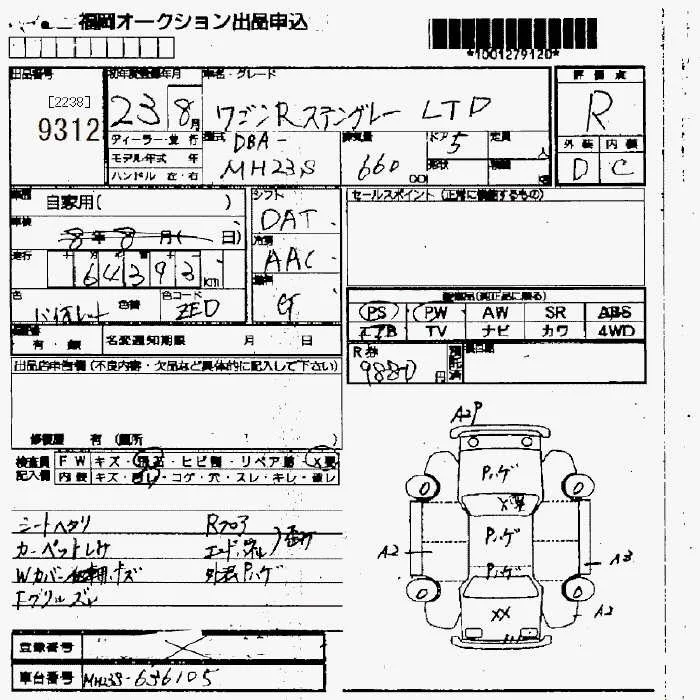 福岡オークション出品申込
*1001279120*
出品番号
[2238]
9312
初年度登録年月
23 8月
車名・グレード
ワゴンRスティングレー LTD
評価点
R
外装 内装
D C
ディーラー・並行
モデル年式 年
ハンドル 左・右
型式
DBA-
MH23S
排気量
660
ドア
5
定員
形状
自家用( )
車検
8年8月( 日)
走行
64393km
色
色替
色コード
ZED
シフト
DAT
冷房
AAC
燃料
G
セールスポイント(正常に機能するもの)
装備品(純正品に限る)
PS PW AW SR ABS
エアB TV ナビ カワ 4WD
R券
9880円
有・無 名変通知期限 月 日
出品店申告欄(不良内容・欠品など具体的に記入して下さい)
修復歴 有(箇所 )
検査員 FW キズ・飛石・ヒビ割・リペア跡・X要
記入欄 内装 キズ・汚レ・コゲ・穴・スレ・キレ・破レ
シートヘタリ Rフロア
カーペットシミ エンドパネル
Wカバー キズ 外装Pハゲ
Fグリルズレ
登録番号
車台番号 MH23S-636105
A2P
Pハゲ
X要
Pハゲ
Pハゲ
XX
A2
A3
A2